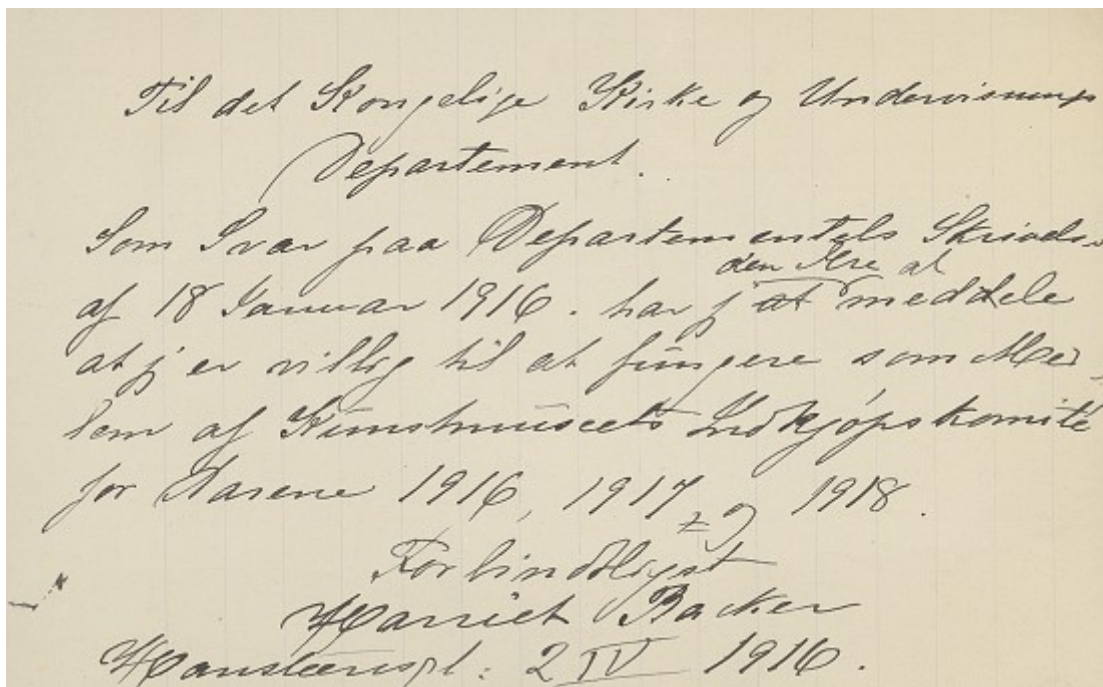 Til det Kongelige Kirke og Undervisnings
Departement.
Som Svar paa Departementets Skrivelse
den Ære at
af 18 Januar 1916. har j at meddele
at j er villig til at fungere som Med-
lem af Kunstmuseets Indkjøpskomité
for Aarene 1916, 1917 og 1918.
Forbindtligst
Harriet Backer
Hansteensgt: 2 IV 1916.